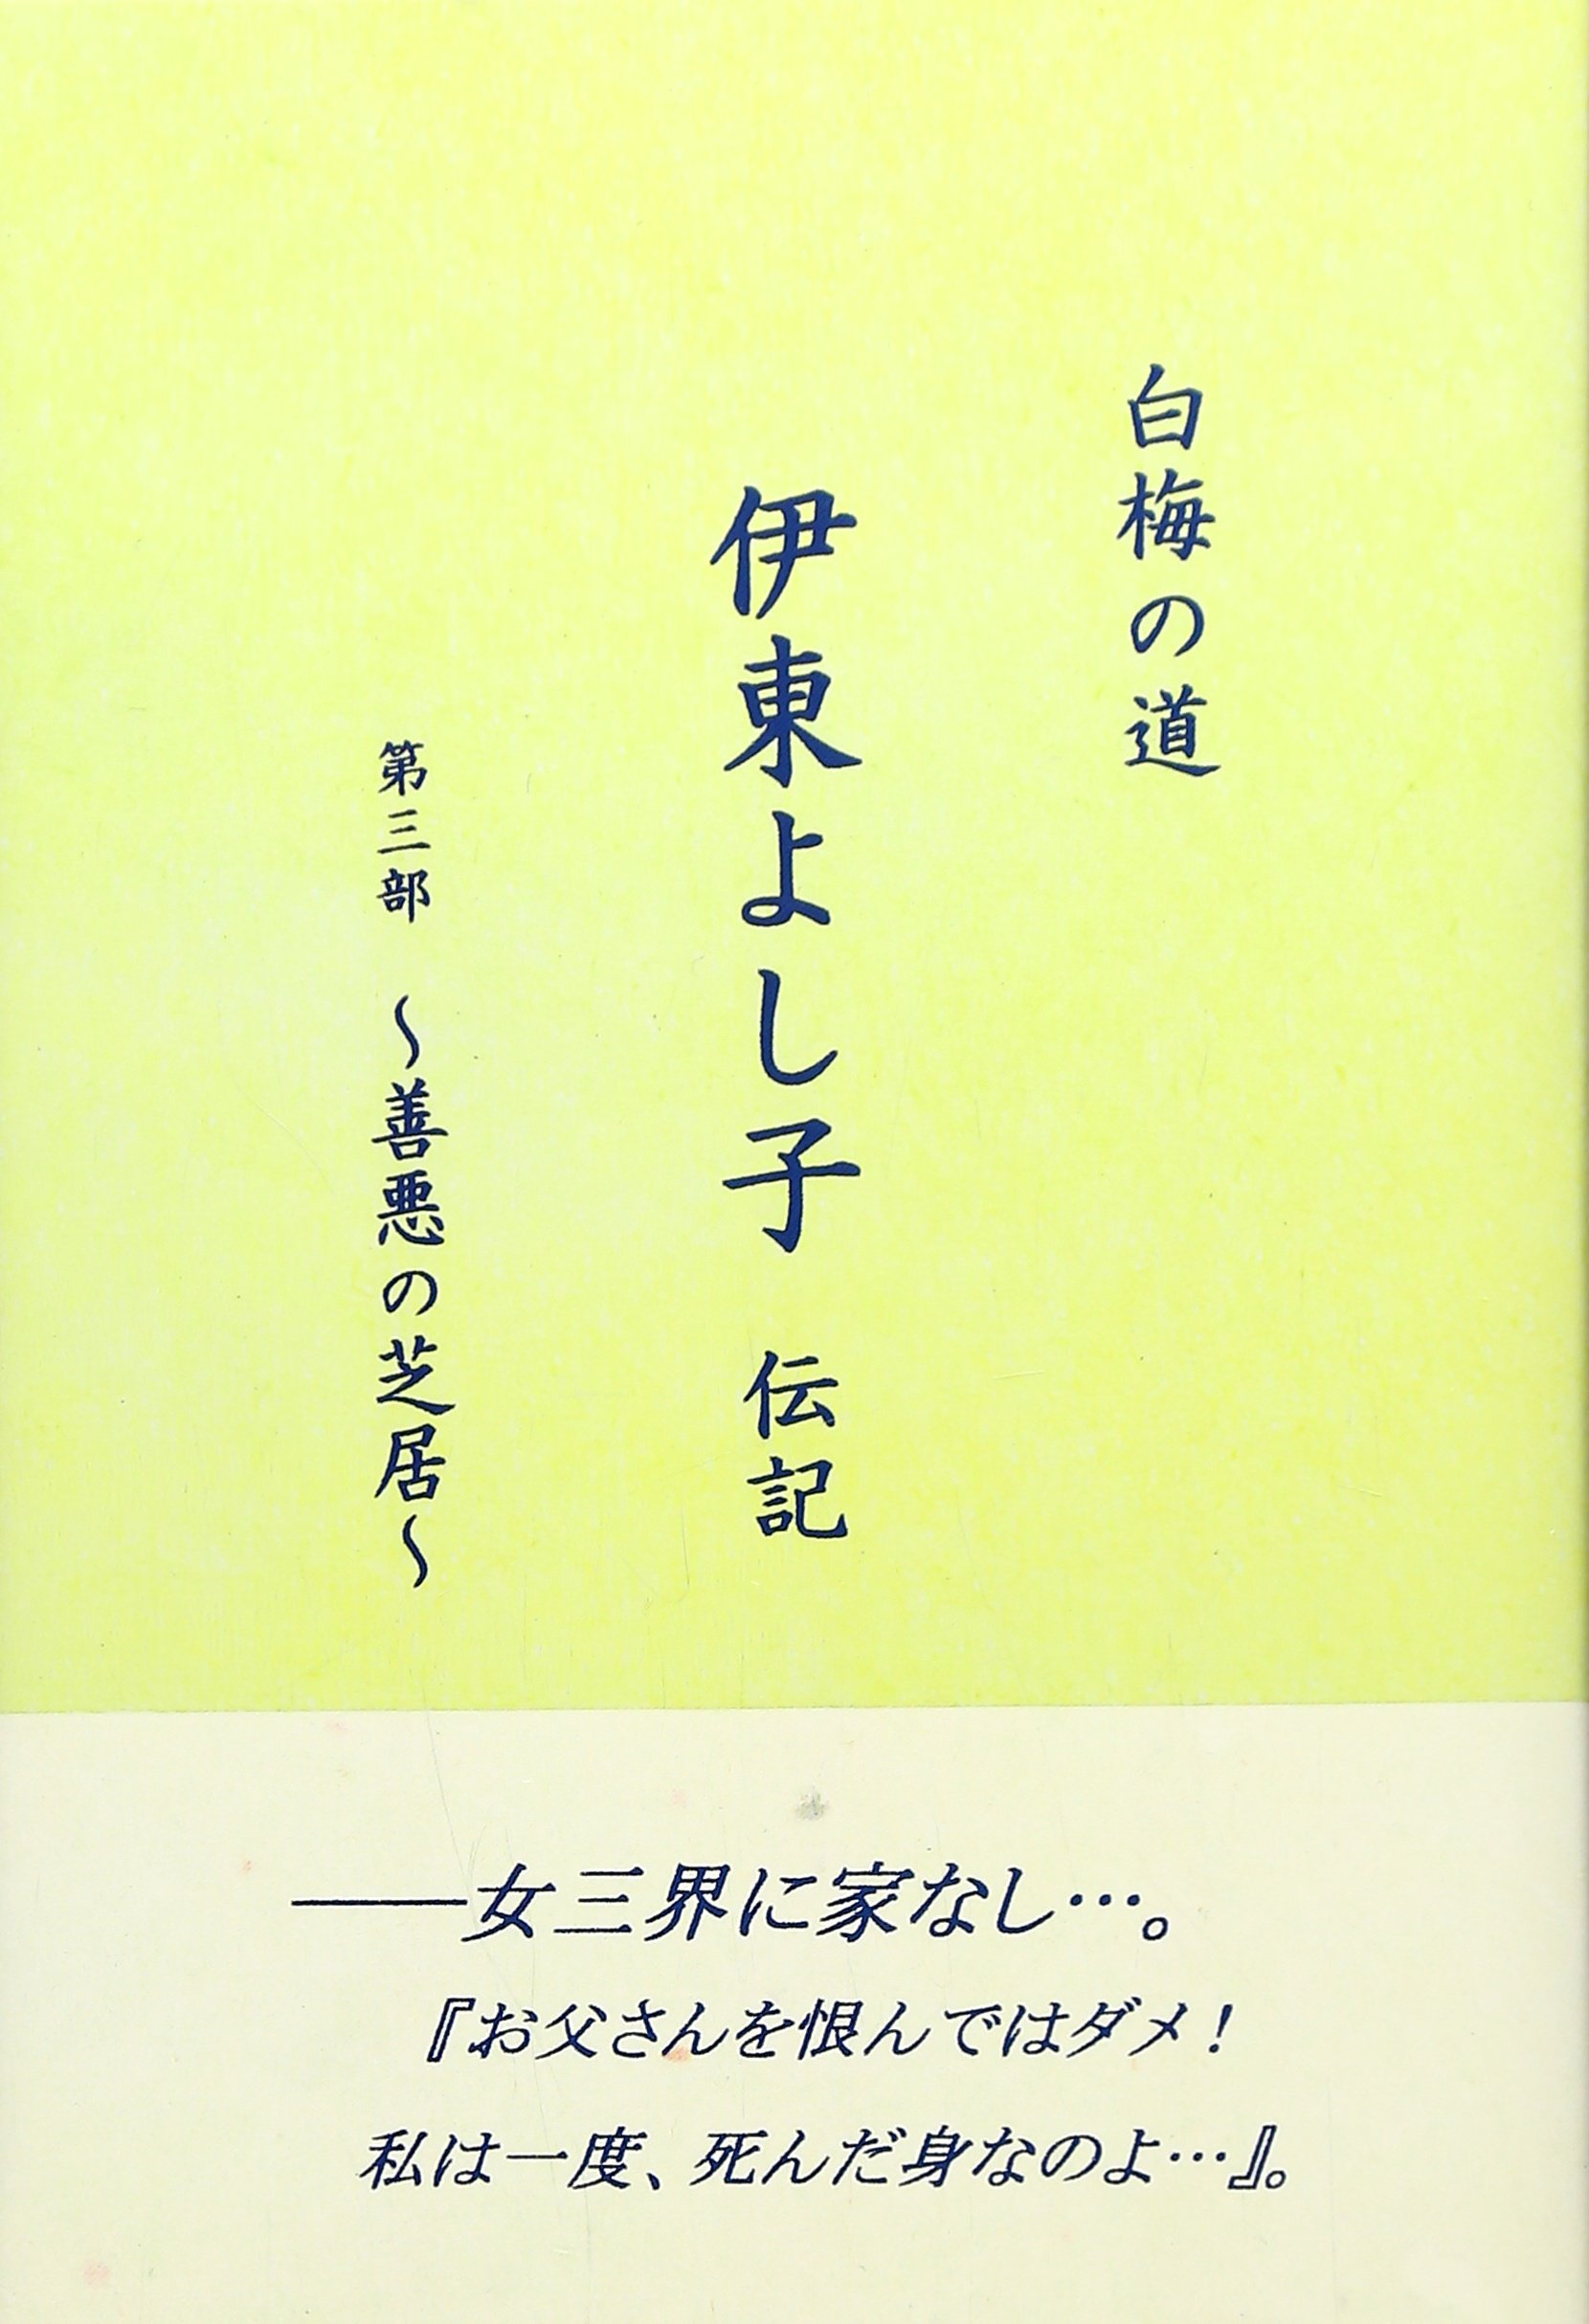 白梅の道
伊東よし子 伝記
第三部 〜善悪の芝居〜
――女三界に家なし…。
『お父さんを恨んではダメ!
私は一度、死んだ身なのよ…』。